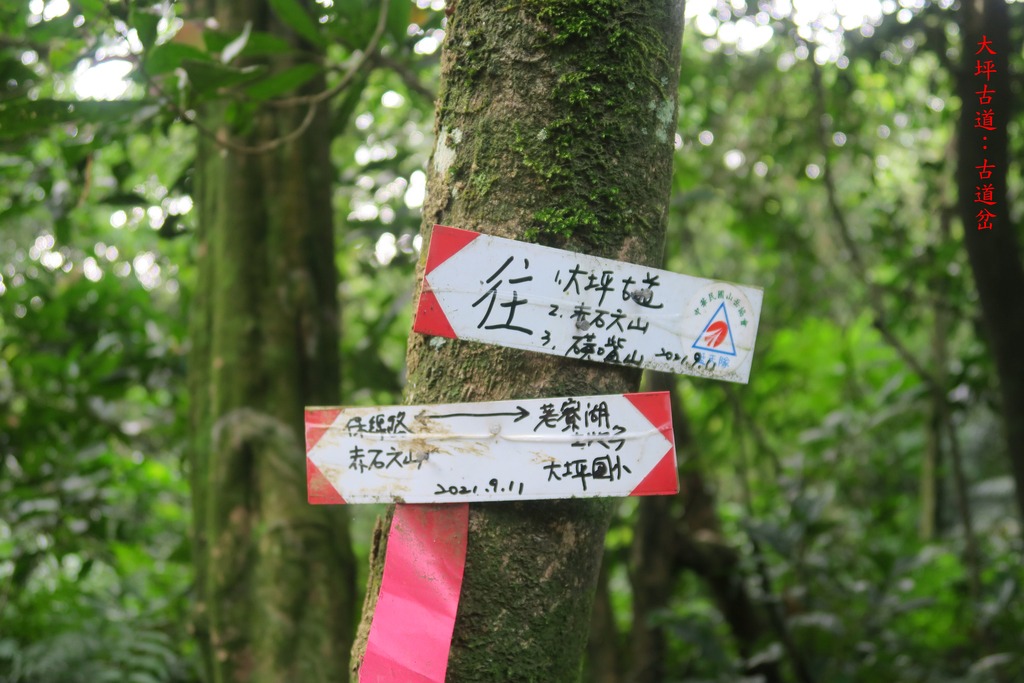 大坪古道：古道岔
往
1.大坪古道
2.赤石尖山
3.磺嘴山 2021.9.11
中華民國山岳協會
保線路 ←→ 荖寮湖山
赤石尖山
大坪國小
2021.9.11